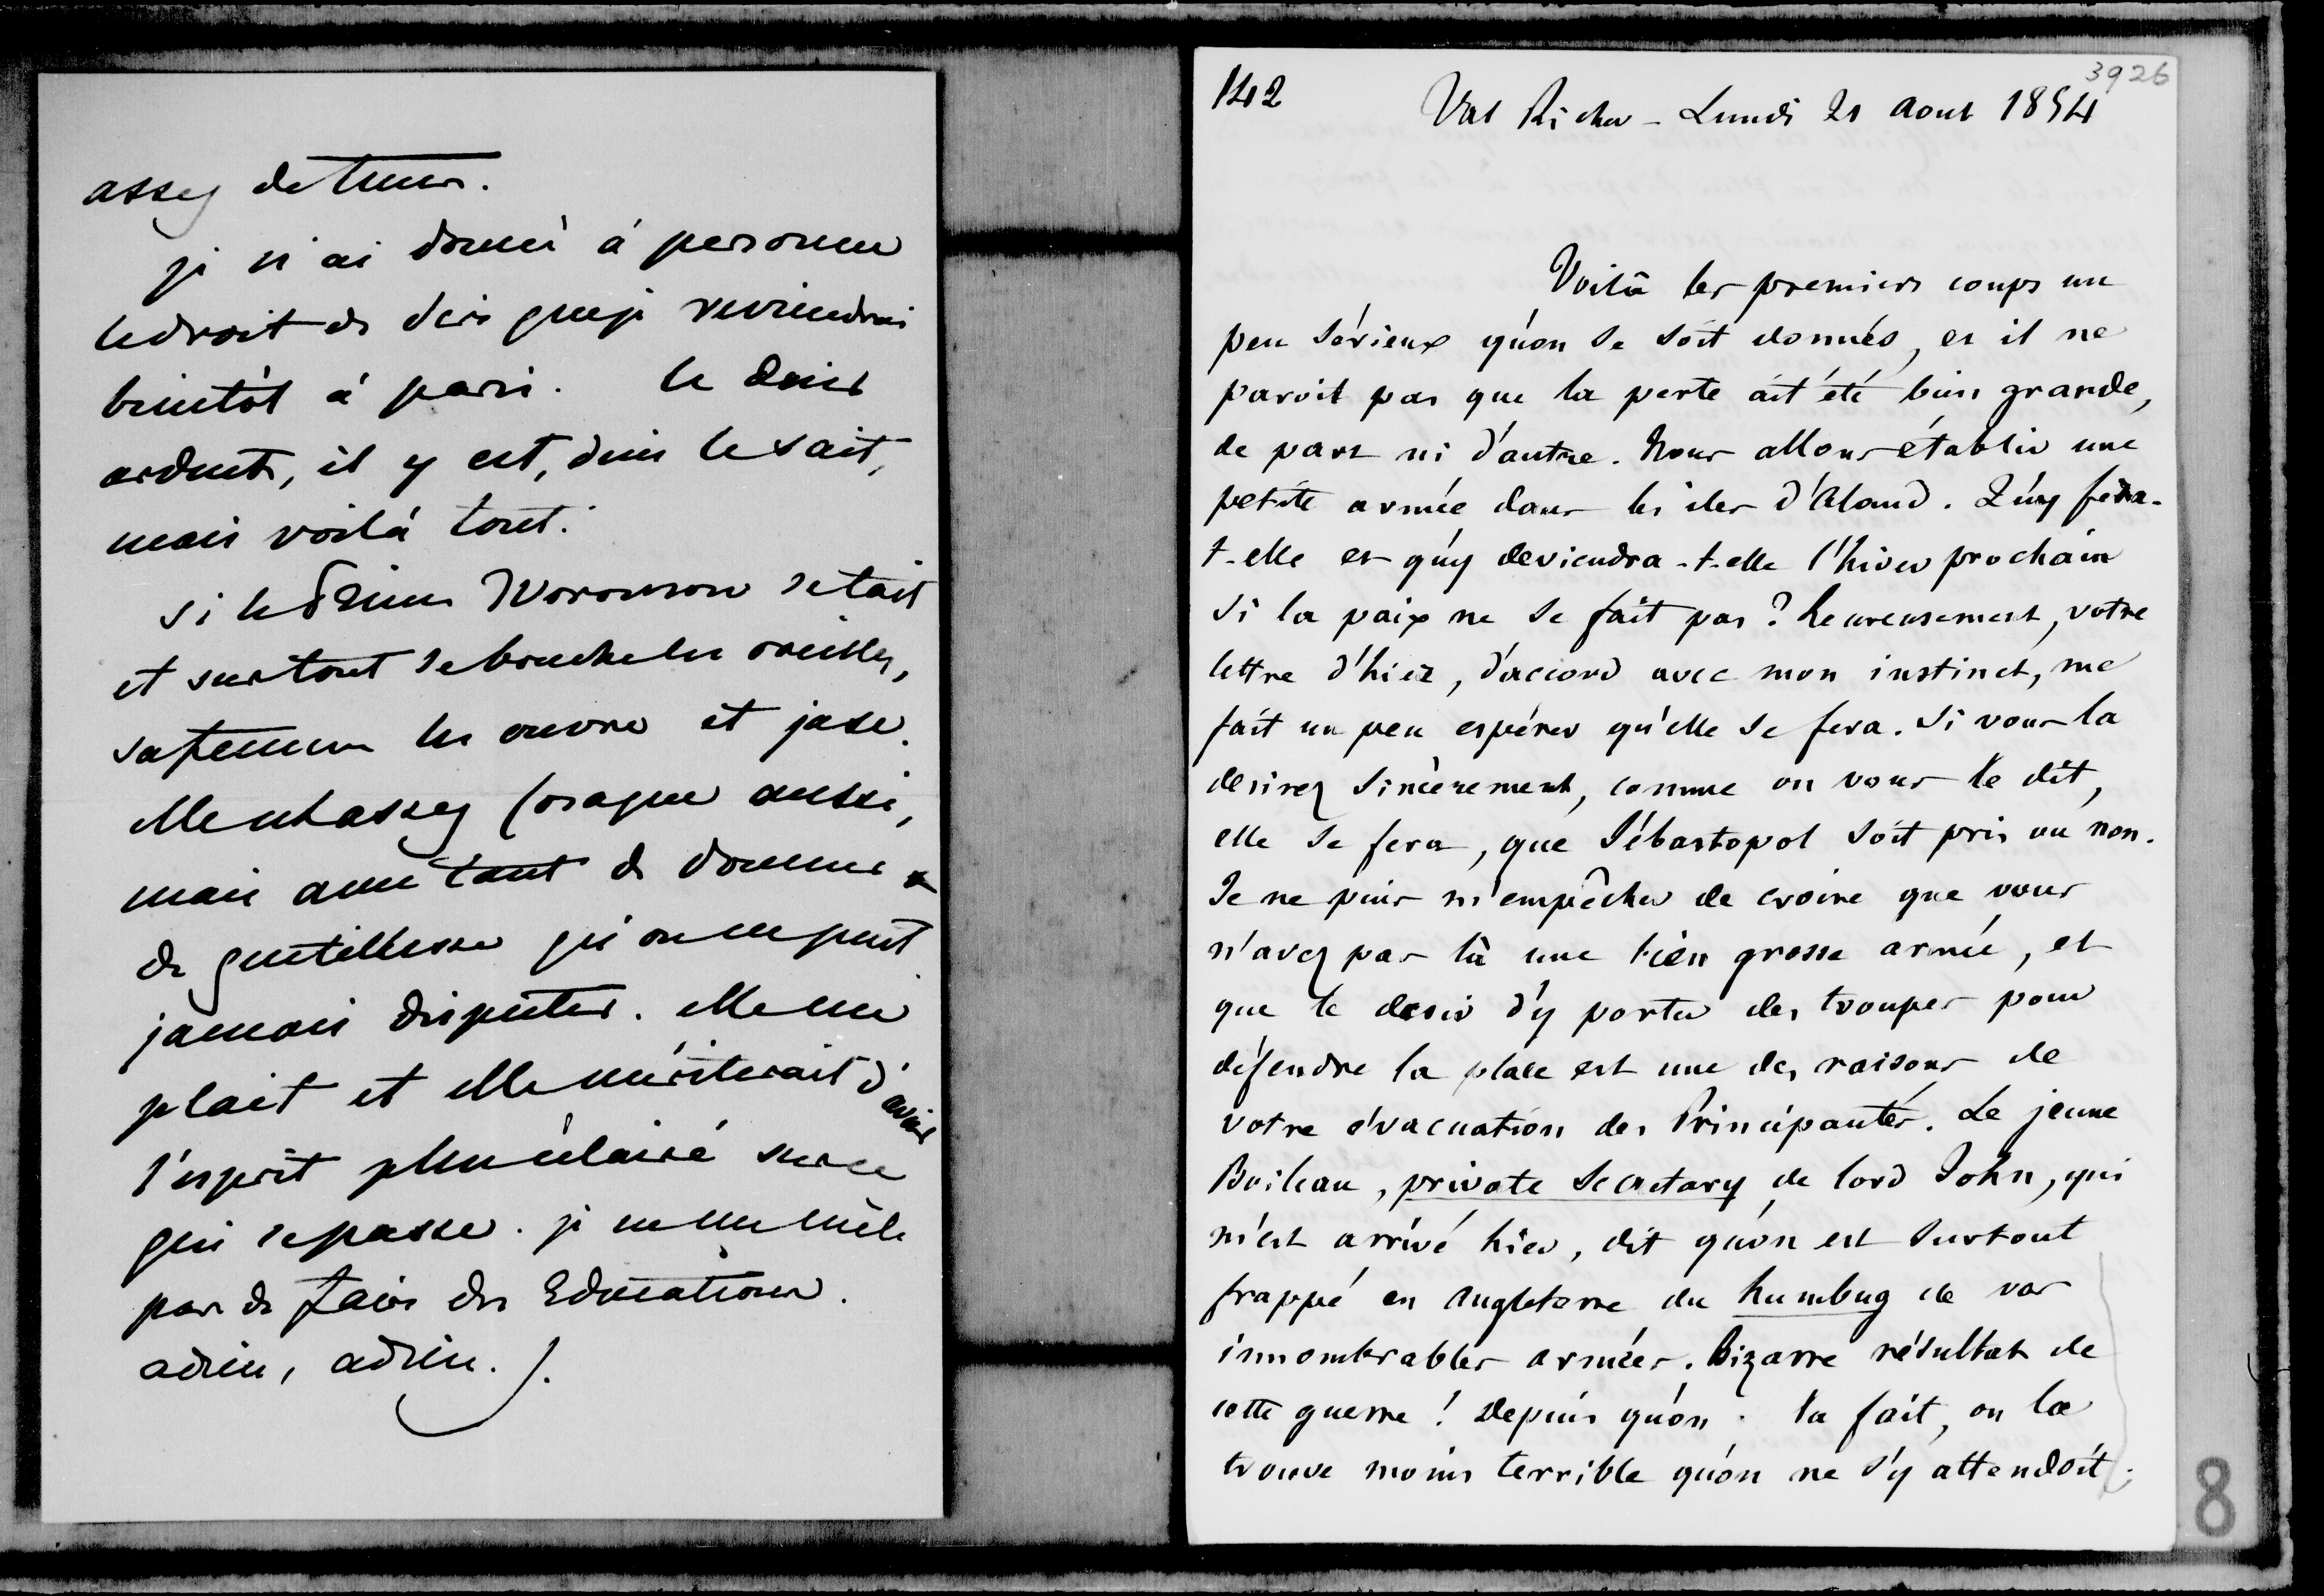 assez de tems.
je n'ai donné à personne
le droit de dire que je reviendrai
bientôt à paris. le desir
ardent, il y est, dieu le sait,
mais voilà tout.
si le Prince Woronzow se tait
et surtout se bouche les oreilles,
sa femme les ouvre et jase.
elle est assez cosaque aussi,
mais avec tant de douceur &
de gentillesse qu'on ne peut
jamais disputer. elle me
plait et elle mériterait d'avoir
l'esprit plus éclairé sur ce
qui se passe. je ne me mêle
pas de faire des Educations.
adieu, adieu.
142
3926
Val Richer - Lundi 21 Aout 1854
Voilà les premiers coups un
peu sérieux qu'on se soit donnés, et il ne
paroit pas que la perte ait été bien grande,
de part ni d'autre. Nous allons établir une
petite armée dans les iles d'Aland. Qu'y fera-
t-elle et qu'y deviendra-t-elle l'hiver prochain
si la paix ne se fait pas ? heureusement, votre
lettre d'hier, d'accord avec mon instinct, me
fait un peu espérer qu'elle se fera. Si vous la
desirez sincèrement, comme on vous le dit,
elle se fera, que Sébastopol soit pris ou non.
Je ne puis m'empêcher de croire que vous
n'avez pas là une bien grosse armée, et
que le desir d'y porter des troupes pour
défendre la place est une des raisons de
votre évacuation des Principautés. Le jeune
Boileau, private Secretary de lord John, qui
m'est arrivé hier, dit qu'on est surtout
frappé en Angleterre du humbug de vos
innombrables armées. Bizarre résultat de
cette guerre ! Depuis qu'on la fait, on la
trouve moins terrible qu'on ne s'y attendoit ;
8